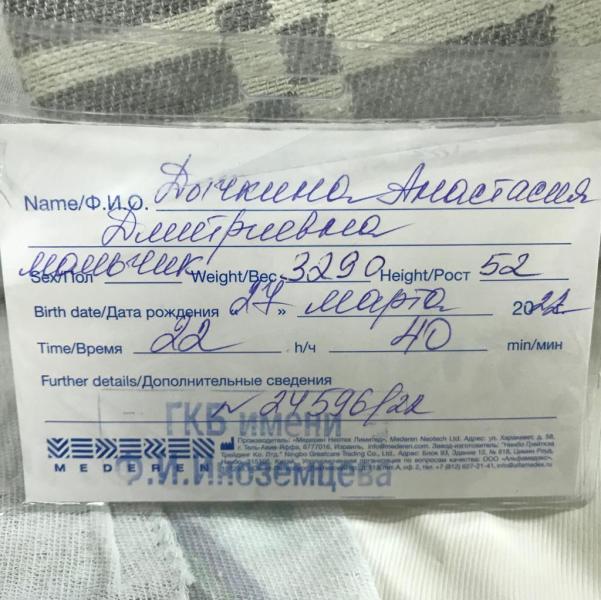 Name/Ф.И.О. Дычкина Анастасия
Дмитриевна
Sex/Пол мальчик Weight/Вес 3290 Height/Рост 52
Birth date/Дата рождения «27» марта 2022
Time/Время 22 h/ч 40 min/мин
Further details/Дополнительные сведения
№ 24596/22
ГКБ имени
Ф.И.Иноземцева
MEDEREN
Производитель: «Медерен Неотех Лимитед», Mederen Neotech Ltd. Адрес: ул. Харакевет, д. 58,
г. Тель-Авив-Яффа, 6777016, Израиль. Завод-изготовитель: "Нинбо Грейткэа
Трейдинг Ко. Лтд." Ningbo Greatcare Trading Co., Ltd. Адрес: Блок 93, Здание 12, № 818, Цимин Роуд,
Нинбо, 315105, Китай. Уполномоченная организация по вопросам качества: ООО «Альфамедэкс»,
д. 113 лит.А, оф. 2, тел +7 (812) 627-21-41, info@alfamedex.ru